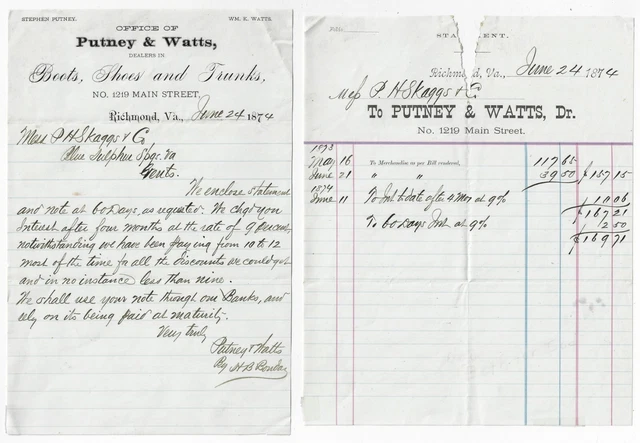 STEPHEN PUTNEY. WM. K. WATTS.
OFFICE OF
Putney & Watts,
DEALERS IN
Boots, Shoes and Trunks,
NO. 1219 MAIN STREET,
Richmond, Va., June 24 1874
Mess P. H Skaggs & Co
Blue Sulpher Spgs. Va
Gents.
We enclose statement
and note at 60 Days, as requested. We chgd you
Interest after four months at the rate of 9 percent
notwithstanding we have been paying from 10 to 12
most of the time for all the Discounts we could get
and in no instance less than nine.
We shall use your note through our Banks, and
rely on its being paid at maturity.
Very truly
Putney & Watts
STATEMENT.
Richmond, Va., June 24 1874
Mess P. H Skaggs & Co
To PUTNEY & WATTS, Dr.
No. 1219 Main Street.
1873
May 16 To Merchandise as per Bill rendered, 117 65
June 21 " " 39 50 $157 15
1874
June 11 To Int to date after 4 Mos at 9% 10 06
$167 21
To 60 Days Int at 9% 2 50
$169 71